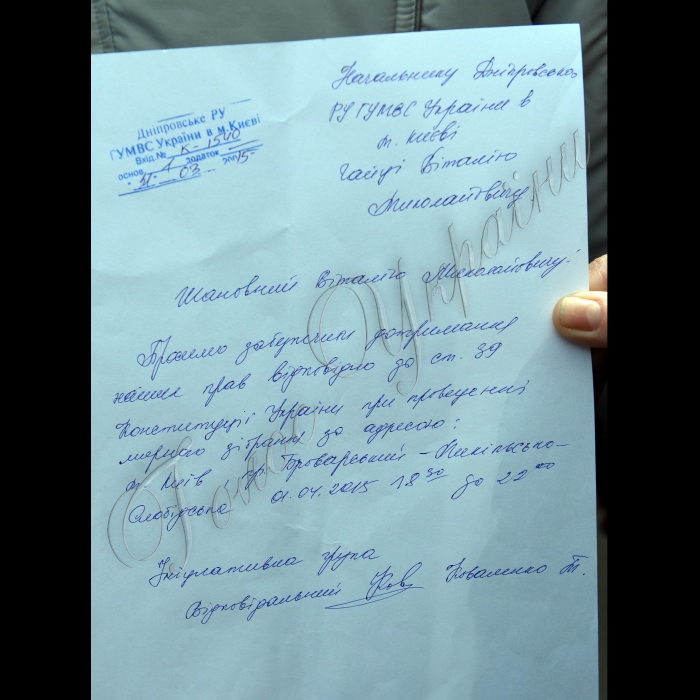 Начальнику Дніпровського
РУ ГУМВС України в
м. Києві
Гайці Віталію
Миколайовичу
Дніпровське РУ
ГУМВС України в м. Києві
Вхід № К-1540
основ. 1 додаток
31 03 2015
Шановний Віталію Миколайовичу!
Просимо забезпечити дотримання
наших прав відповідно до ст. 39
Конституції України при проведенні
мирного зібрання за адресою:
м. Київ, пр. Броварський - Микільсько-
Слобідська 01.04.2015 18 30 до 22 00
Ініціативна група
Відповідальний Коваленко Т.
Голос України